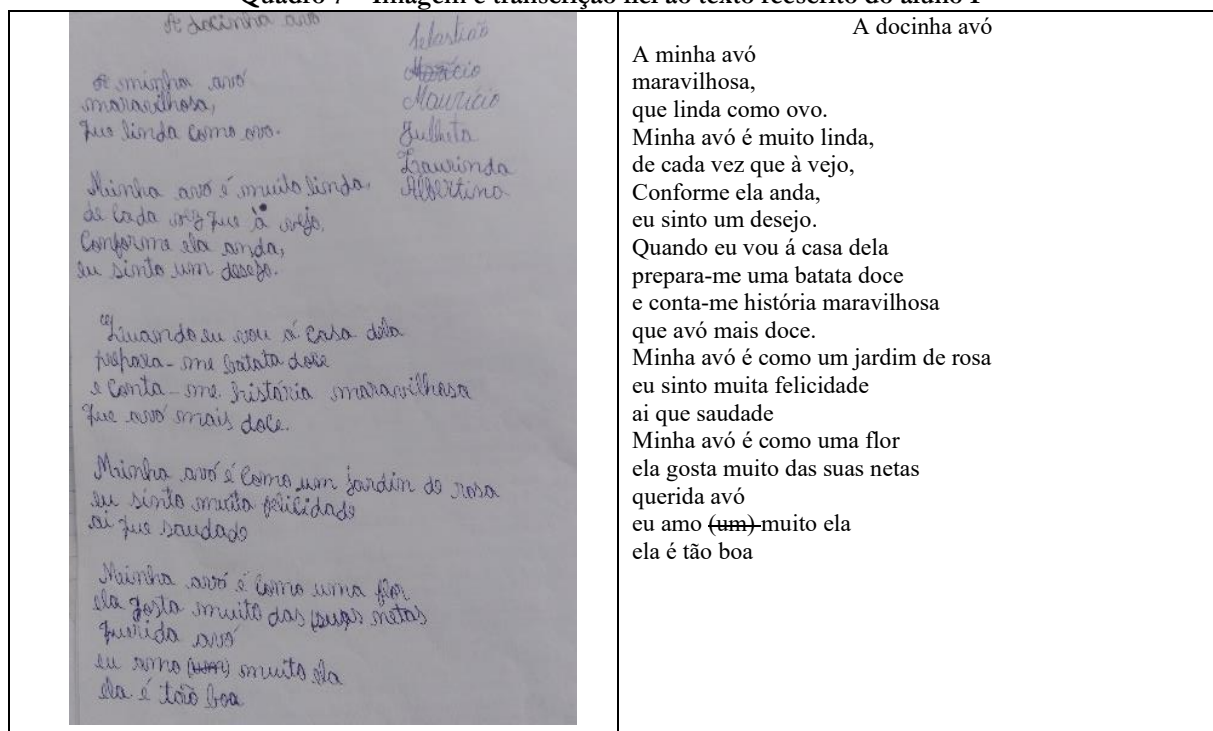 Quadro 7 – Imagem e transcrição fiel ao texto reescrito do aluno F
A docinha avó
Sebastião
Marécio
Maurício
Julheta
Laurinda
Albertina
A minha avó
maravilhosa,
que linda como ovo.
Minha avó é muito linda,
de cada vez que à vejo,
Conforme ela anda,
eu sinto um desejo.
Quando eu vou á casa dela
prepara-me batata doce
e conta-me história maravilhosa
que avó mais doce.
Minha avó é como um jardin de rosa
eu sinto muita felicidade
ai que saudade
Minha avó é como uma flor
ela gosta muito das suas netas
querida avó
eu amo (um) muito ela
ela é tão boa
A docinha avó
A minha avó
maravilhosa,
que linda como ovo.
Minha avó é muito linda,
de cada vez que à vejo,
Conforme ela anda,
eu sinto um desejo.
Quando eu vou á casa dela
prepara-me uma batata doce
e conta-me história maravilhosa
que avó mais doce.
Minha avó é como um jardim de rosa
eu sinto muita felicidade
ai que saudade
Minha avó é como uma flor
ela gosta muito das suas netas
querida avó
eu amo (um) muito ela
ela é tão boa